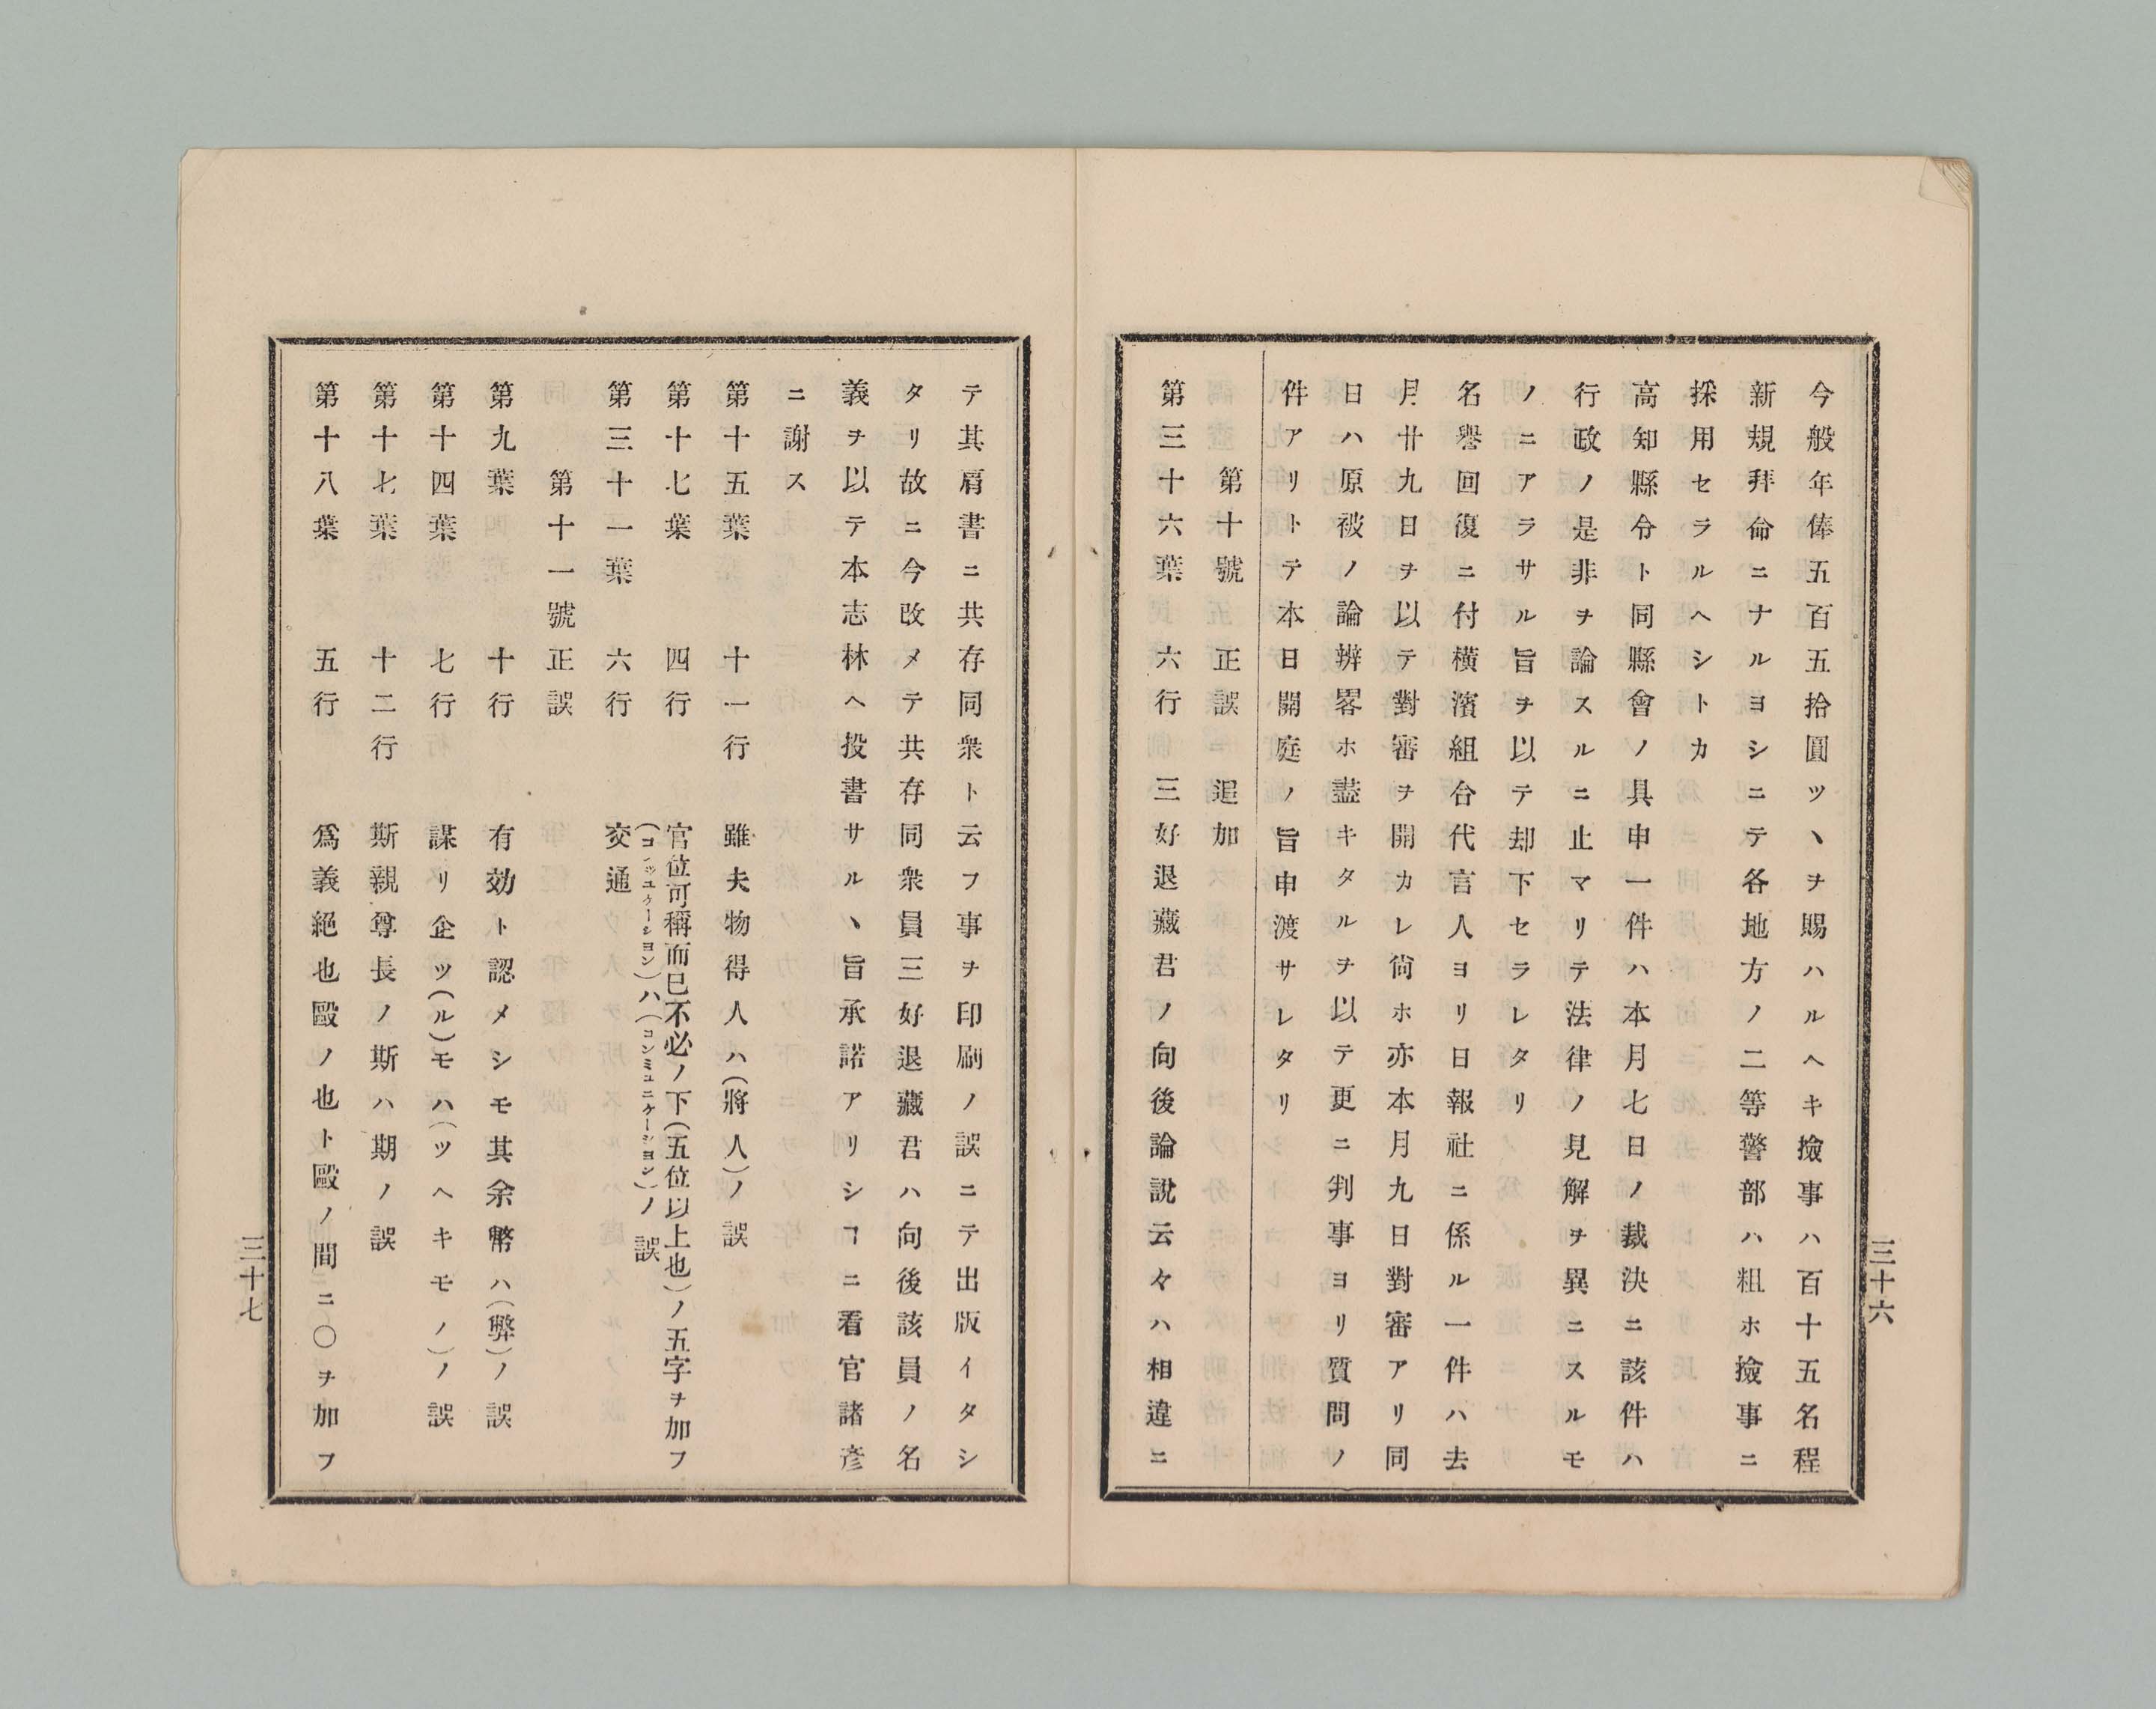 今般年俸五百五拾圓ツヽヲ賜ハルヘキ撿事ハ百十五名程
新規拜命ニナルヨシニテ各地方ノ二等警部ハ粗ホ撿事ニ
採用セラルヘシトカ
高知縣令ト同縣會ノ具申一件ハ本月七日ノ裁決ニ該件ハ
行政ノ是非ヲ論スルニ止マリテ法律ノ見解ヲ異ニスルモ
ノニアラサル旨ヲ以テ却下セラレタリ
名譽回復ニ付横濱組合代言人ヨリ日報社ニ係ル一件ハ去
月廿九日ヲ以テ對審ヲ開カレ尙ホ亦本月九日對審アリ同
日ハ原被ノ論辨畧ホ盡キタルヲ以テ更ニ判事ヨリ質問ノ
件アリトテ本日開庭ノ旨申渡サレタリ
第十號 正誤 追加
第三十六葉 六行 三好退藏君ノ向後論說云々ハ相違ニ
三十六
テ其肩書ニ共存同衆ト云フ事ヲ印刷ノ誤ニテ出版イタシ
タリ故ニ今改メテ共存同衆員三好退藏君ハ向後該員ノ名
義ヲ以テ本志林ヘ投書サルヽ旨承諾アリシコニ看官諸彦
ニ謝ス
第十五葉 十一行 雖夫物得人ハ(將人)ノ誤
第十七葉 四行 官位可稱而已不必ノ下(五位以上也)ノ五字ヲ加フ
第三十一葉 六行 交通(コンッユケーション)ハ(コンミュニケーション)ノ誤
第十一號 正誤
第九葉 十行 有効ト認メシモ其余幣ハ(弊)ノ誤
第十四葉 七行 謀リ企ツ(ル)モハ(ツヘキモノ)ノ誤
第十七葉 十二行 斯親尊長ノ斯ハ期ノ誤
第十八葉 五行 爲義絕也毆ノ也ト毆ノ間ニ〇ヲ加フ
三十七